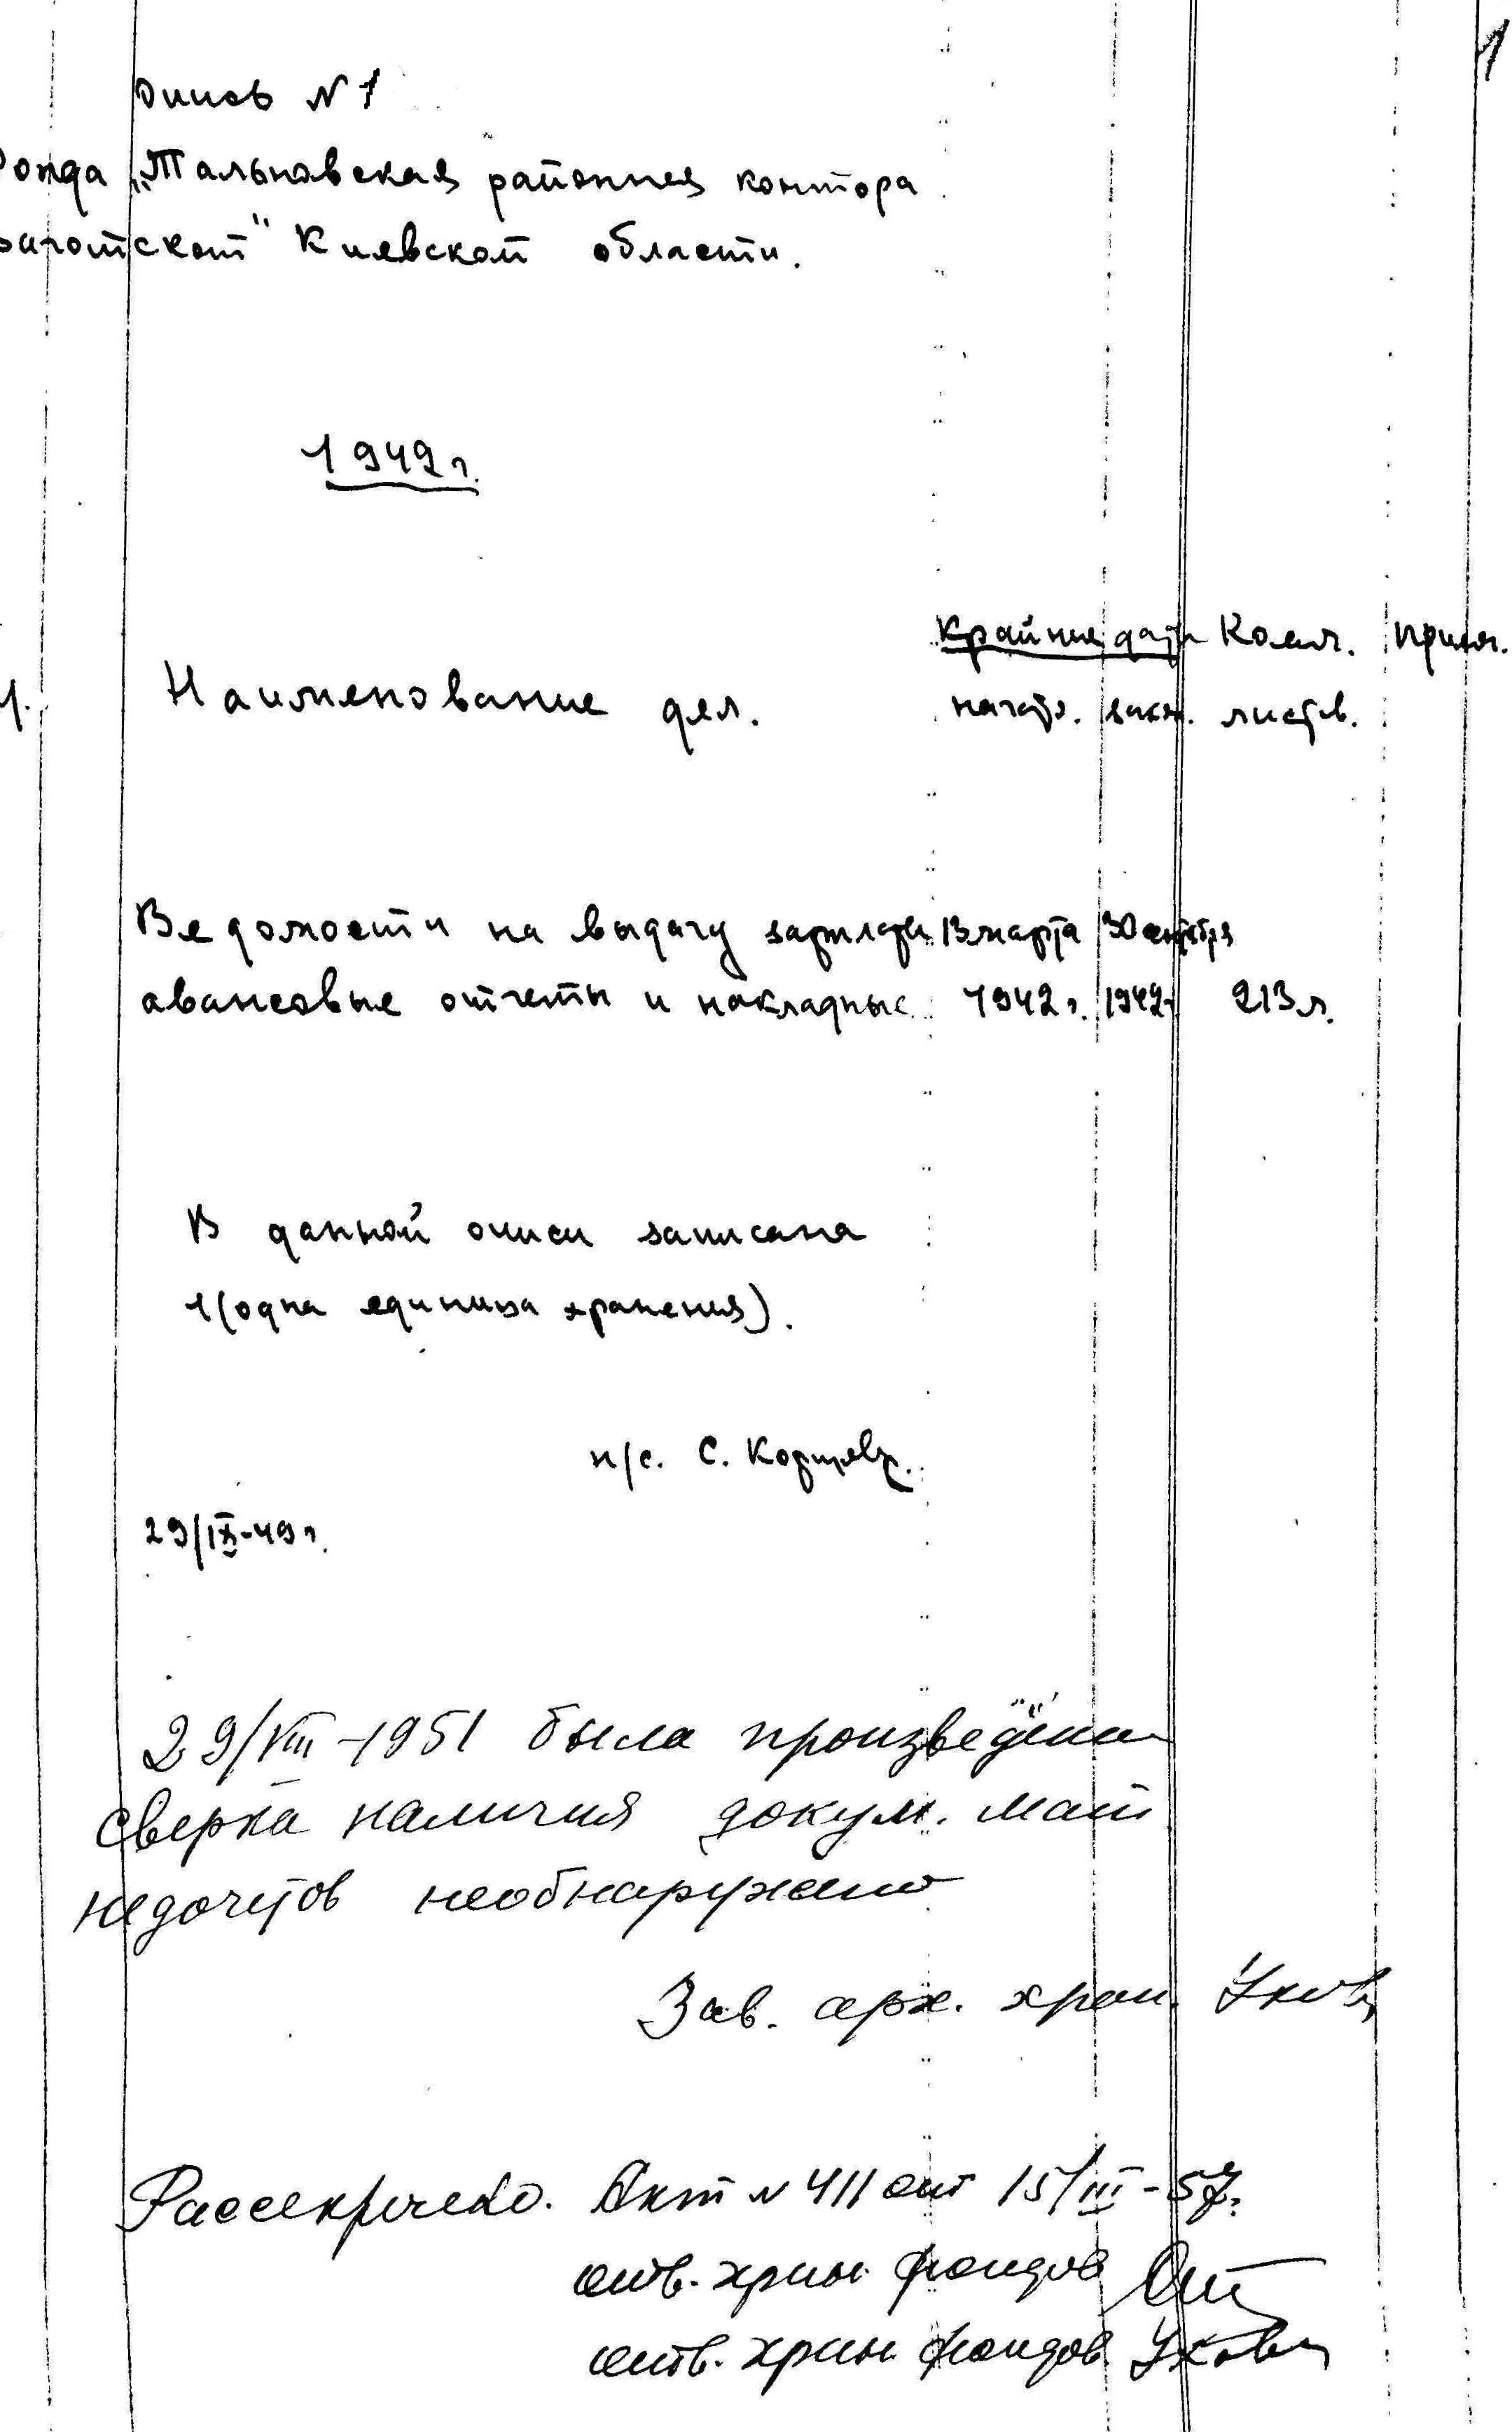 1
Опись N 1
фонда „Тальновская районная контора
заготскот" Киевской области.
1942 г.
крайние даты Колич. прим.
Наименование дел. начало. законч. листов.
Ведомости на выдачу зарплаты 13 марта 30 сентября
авансовые отчеты и накладные 1942 г. 1942 г 213 л.
В данной описи записана
1 (одна единица хранения).
н/с. С.
29/IX-49 г.
29/VIII-1951 была произведена
сверка наличия докум. мат
недочетов необнаружено
Зав. арх. хран.
Рассекречено. Акт N 411 от 15/III-57.
отв. хран фондов
отв. хран фондов